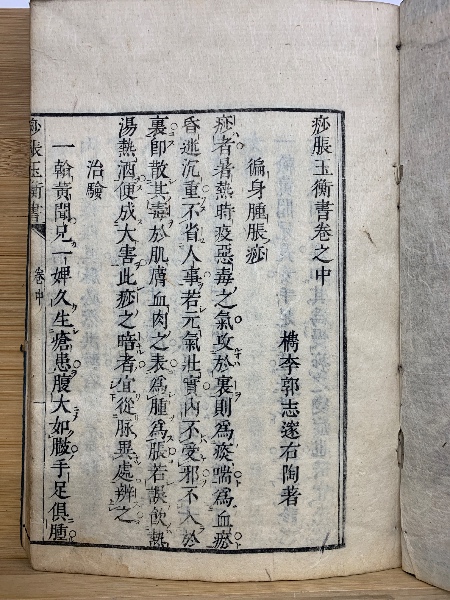 痧脹玉衡書卷之中
檇李郭志邃右陶著
徧身腫脹痧
痧者暑熱時疫惡毒之氣攻於裏則為痰喘為血瘀
昏迷沉重不省人事若元氣壯實內不受邪不入於
裏即散其毒於肌膚血肉之表為腫為脹若誤飲熱
湯熱酒便成大害此痧之暗者宜從脉異處辨之
治驗
一翰黃聞兄一婢久生瘡患腹大如皷手足俱腫
痧脹玉衡書
卷中